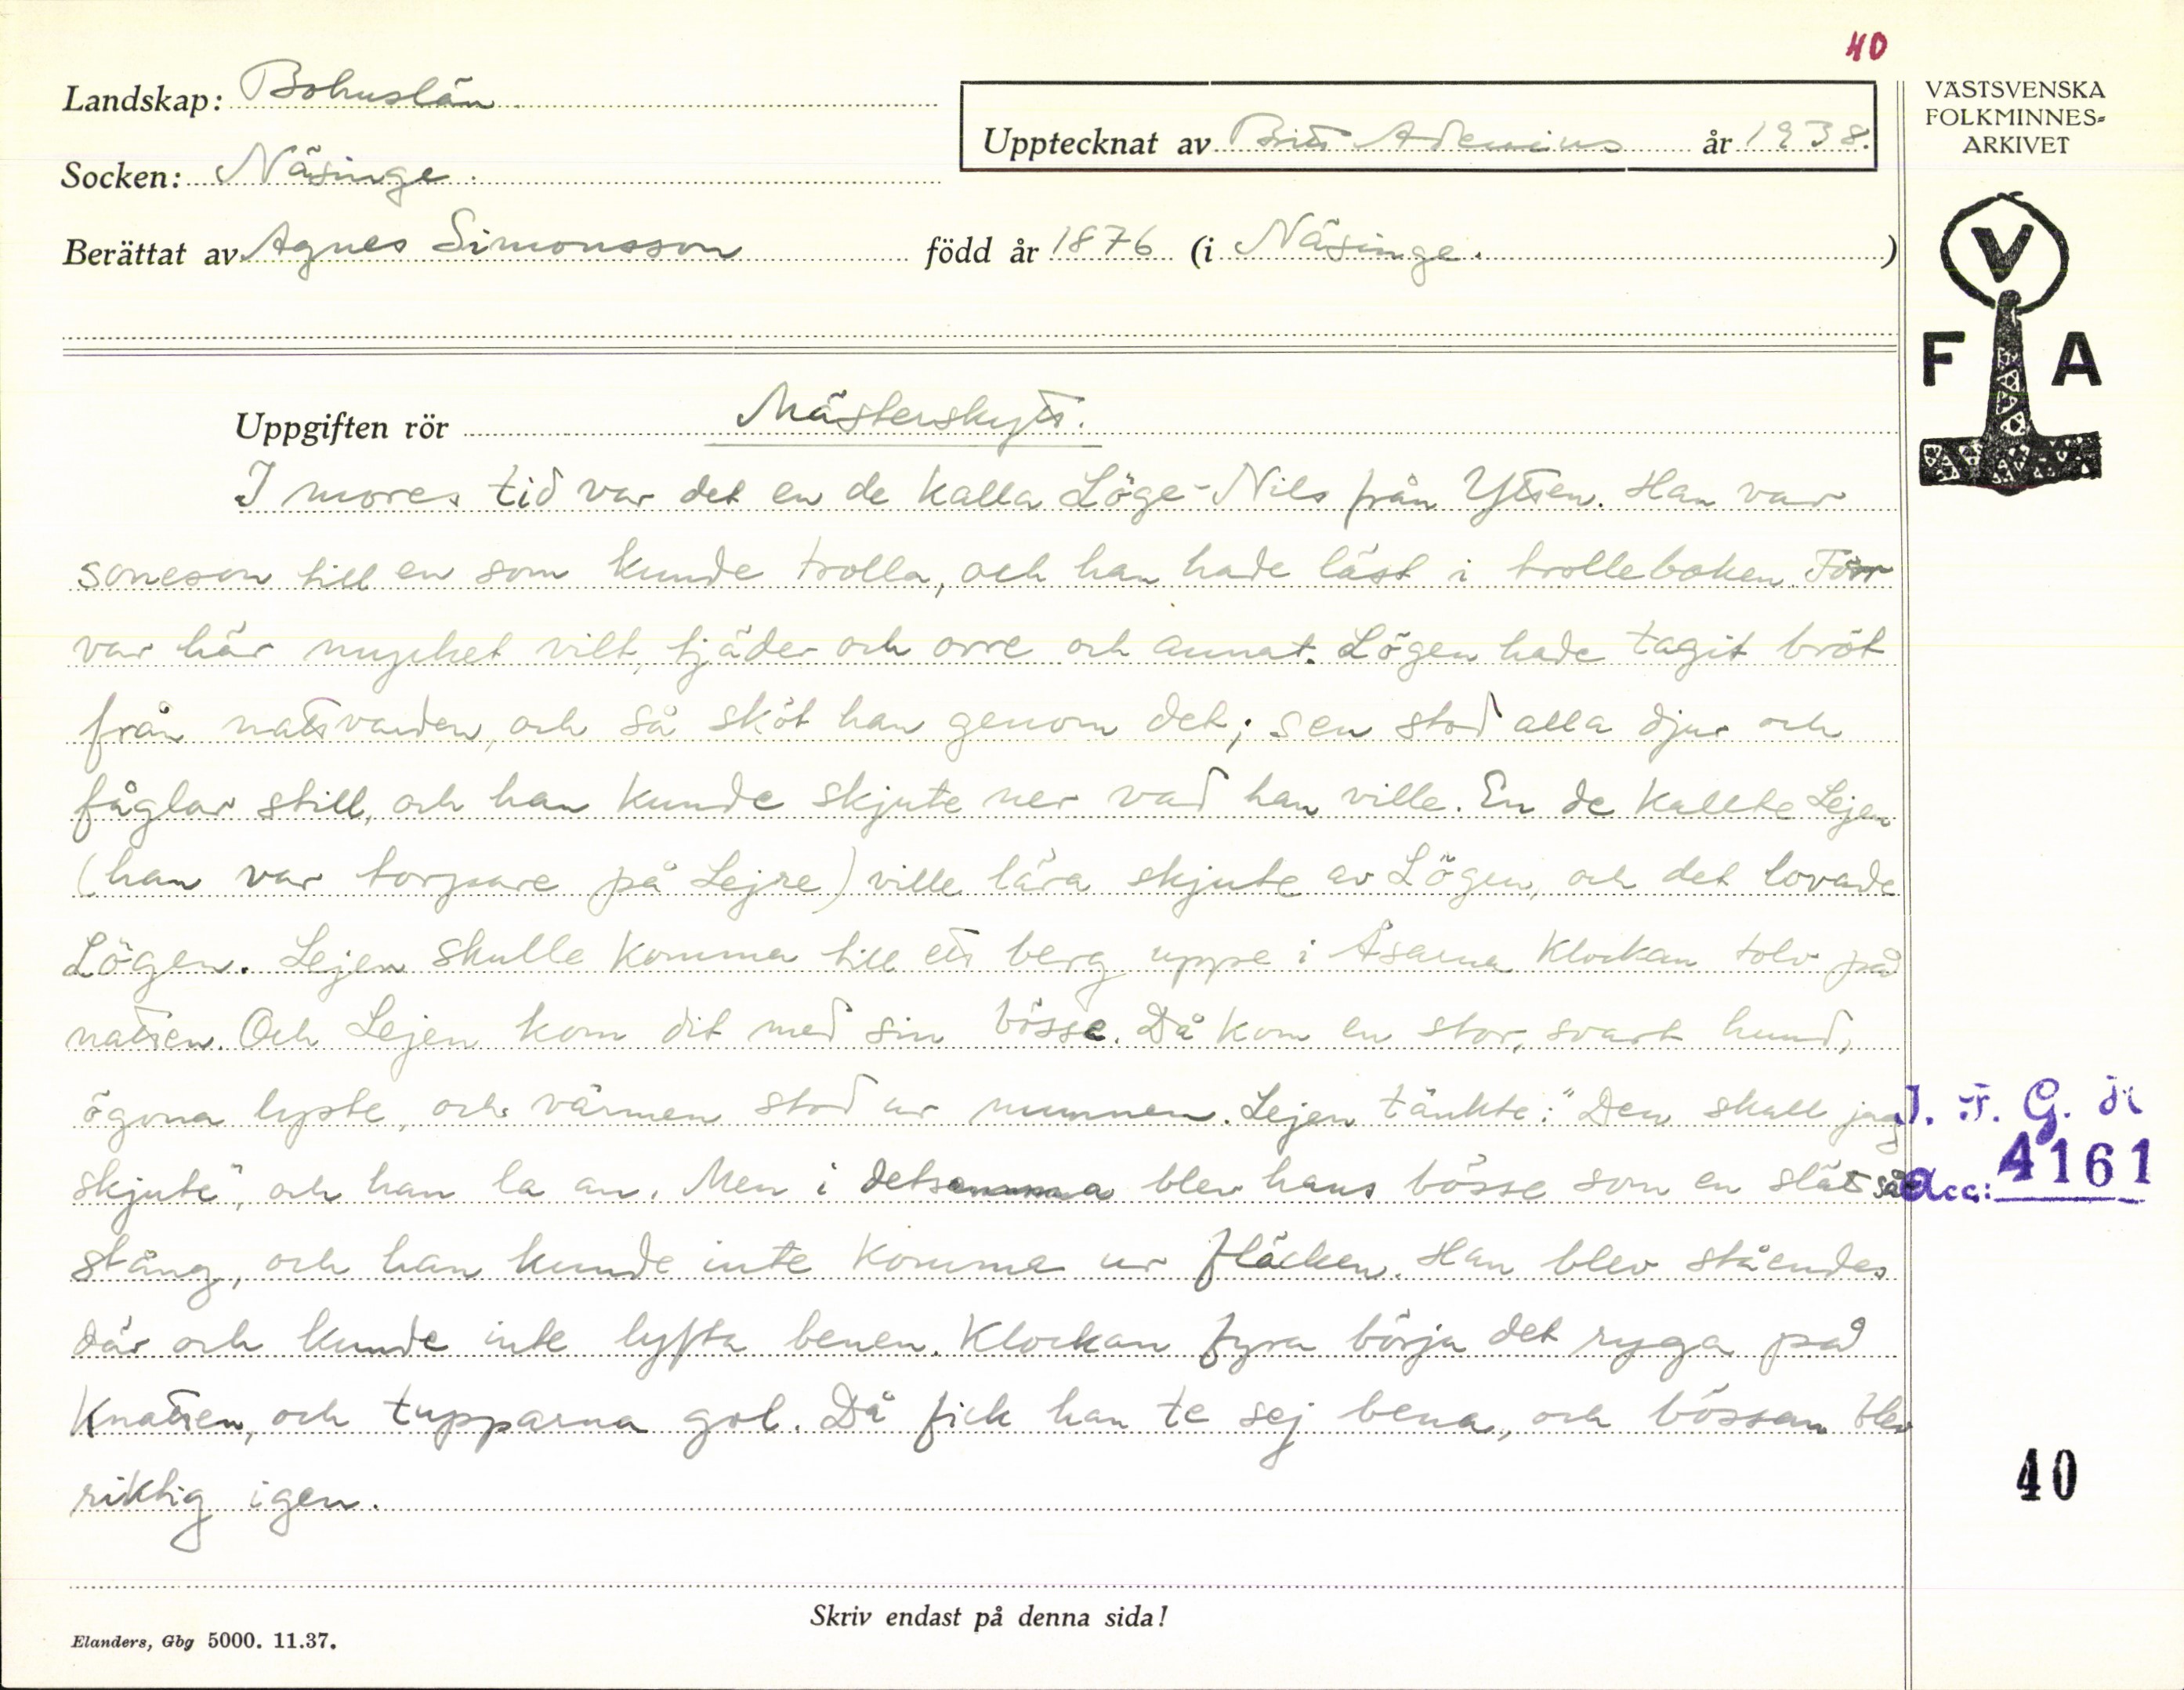 40
Landskap: Bohuslän
Upptecknat av Britt Ademius år 1938.
Socken: Näsinge.
Berättat av Agnes Simonsson född år 1876 (i Näsinge.)
VÄSTSVENSKA
FOLKMINNES=
ARKIVET
V
F A
Uppgiften rör Mästerskytt.
I mores tid var det en de kalla Löge-Nils från Ytten. Han var
soneson till en som kunde trolla, och han hade läst i trolleboken. Förr
var här mycket vilt, tjäder och orre och annat. Lögen hade tagit bröt
från nattvarden, och så sköt han genom det; sen stod alla djur och
fåglar still, och han kunde skjute ner vad han ville. En de kallte Lejen
(han var torpare på Lejre) ville lära skjute av Lögen, och det lovade
Lögen. Lejen skulle komma till ett berg uppe i Åsarna klockan tolv på
natten. Och Lejen kom dit med sin bössa. Då kom en stor, svart hund,
ögona lyste, och värmen stod ur munnen. Lejen tänkte: "Den skall jag
skjute", och han la an. Men i detsamma blev hans bösse som en slät så
stång, och han kunde inte komma ur fläcken. Han blev ståendes
där och kunde inte lyfta benen. Klockan fyra börja det ryga på
Knatten, och tupparna gol. Då fick han te sej bena, och bössan blev
riktig igen.
I. F. G. H
Acc: 4161
40
Skriv endast på denna sida!
Elanders, Gbg 5000. 11.37.